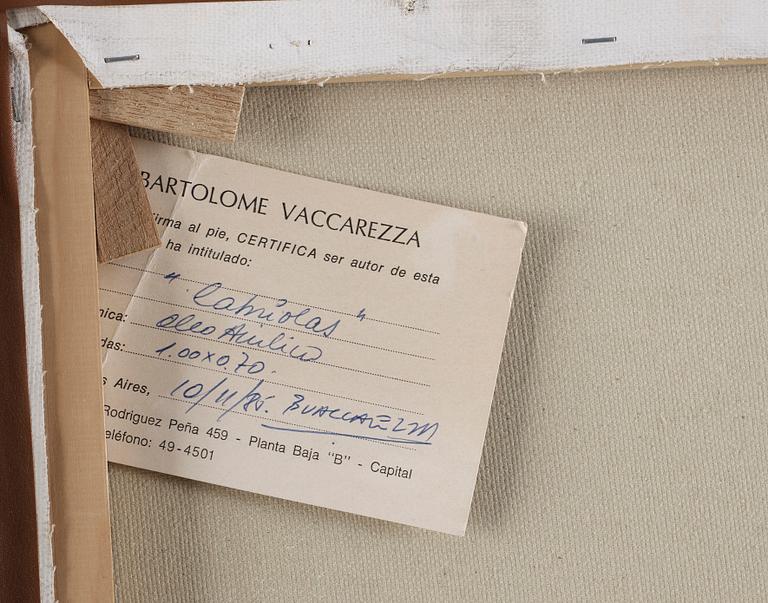 BARTOLOME VACCAREZZA
firma al pie, CERTIFICA ser autor de esta
ha intitulado:
"Cabriolas"
nica: oleo Acrilico
das: 1.00x0.70.
s Aires, 10/11/85. BVACCAREZZA
Rodriguez Peña 459 - Planta Baja "B" - Capital
eléfono: 49-4501